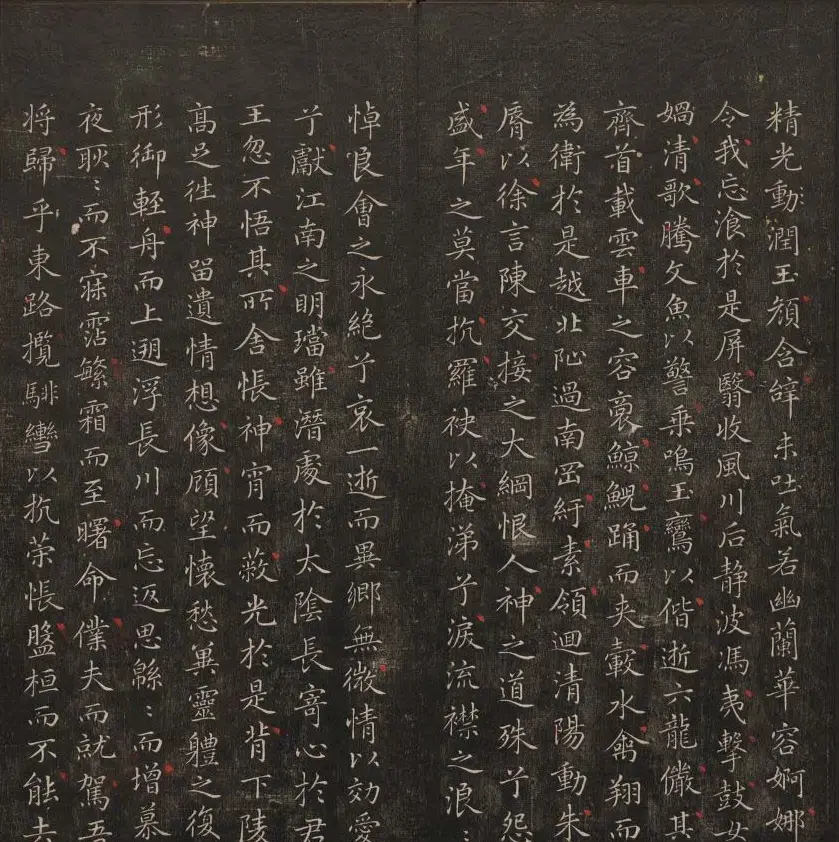 精光動潤玉顏含辝未吐氣若幽蘭華容婀娜
令我忘飡於是屏翳收風川后静波馮夷擊鼓女
媧清歌騰文魚以警乗鳴玉鸞以偕逝六龍儼其
齊首載雲車之容裔鯨鯢踊而夾轂水禽翔而
為衛於是越北沚過南岡紆素領迴清陽動朱
脣以徐言陳交接之大綱恨人神之道殊兮怨
盛年之莫當抗羅袂以掩涕兮淚流襟之浪〻
悼良會之永絶兮哀一逝而異鄉無微情以効愛
兮獻江南之明璫雖潛處於太陰長寄心於君
王忽不悟其所舍悵神宵而蔽光於是背下陵
髙足往神留遺情想像顧望懷愁兾靈軆之復
形御輕舟而上遡浮長川而忘返思緜〻而增慕
夜耿〻而不寐霑繁霜而至曙命僕夫而就駕吾
将歸乎東路攬騑轡以抗䇿悵盤桓而不能去